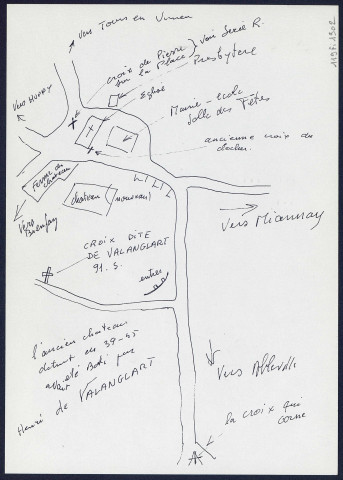 vers Tours en Vimeu
1197-1902
croix de Pierre
sur la Place
voir Série R.
Presbytère
Eglise
vers HUPPY
Mairie - école
Salle des Fêtes
ancienne croix du
clocher.
Ferme du
chateau
chateau
(nouveau)
Vers
vers Miannay
CROIX DITE
DE VALANGLART
91. S.
entrée
l'ancien chateau
détruit en 39-45
avait été Bati par
de VALANGLART
vers Abbeville
la croix qui
corne